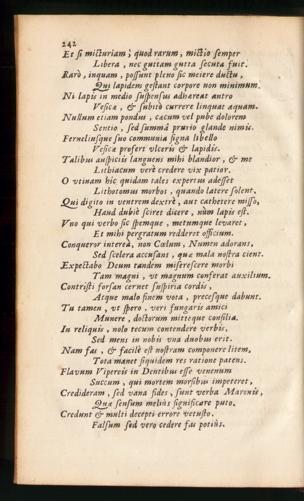 242
Et si micturiam; quod rarum, mictio semper
Libera, nec guttam gutta secuta fuit.
Rarò, inquam, possunt pleno sic meiere ductu,
Qui lapidem gestant corpore non minimum.
Ni lapis in medio suspensus adhæreat antro
Vesicæ, & subitò currere linquat aquam.
Nullum etiam pondus, cacum vel pube dolorem
Sentio, sed summâ prurio glande nimis.
Ferneliusque suo communia signa libello
Vesicæ profert vlceris & lapidis.
Talibus auspiciis languens mihi blandior, & me
Lithiacum verè credere vix patior.
O vtinam hic quidam tales expertus adesset
Lithotomus morbos, quando latere solent.
Qui digito in ventrem dextrè, aut cathetere misso,
Hand dubiè sciret dicere, num lapis est.
Vno qui verbo sic spemque, metumque levaret,
Et mihi pergratum redderet officium.
Conqueror interea, non Cœlum, Numen adorans,
Sed scelera accusans, quæ mala nostra cient.
Expectabo Deum tandem miserescere morbi
Tam magni, vt magnum conferat auxilium.
Contristi forsan cernet suspiria cordis,
Atque malo finem vota, precesque dabunt.
Tu tamen, vt spero, veri fungaris amici
Munere, doctorum mitteque consilia.
In reliquis, nolo tecum contendere verbis,
Sed mens in nobis vna duobus erit.
Nam fas, & facilè est nostram componere litem,
Tota manet siquidem res ratione patens.
Flavum Vipereis in Dentibus esse venenum
Succum, qui mortem morsibus impeteret,
Credideram, sed vana fides, sunt verba Maronis,
Quæ sensum meliùs significare puto.
Credunt & multi decepti errore vetusto.
Falsum sed vero cedere fas potiùs.